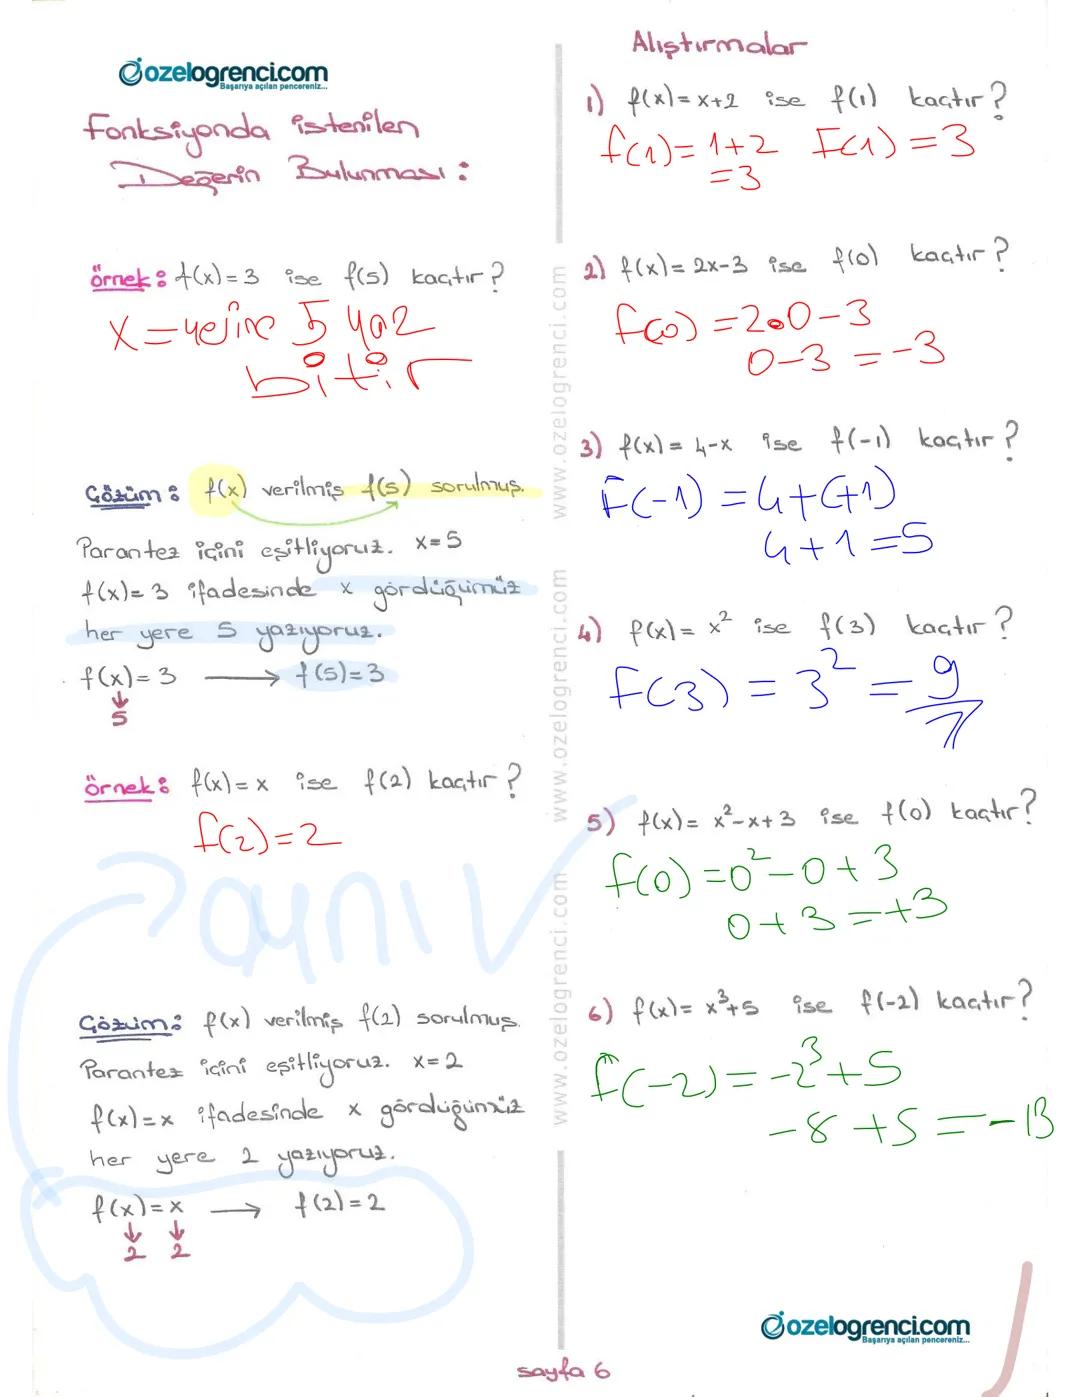 ozelogrenci.com
Başarıya açılan pencereniz...
Fonksiyonda istenilen
Değerin Bulunması:
örnek: f(x)=3 ise f(5) kaçtır?
x=yerine 5 yaz
bitir
Çözüm: f(x) verilmiş f(5) sorulmuş.
Parantez içini eşitliyoruz. x=5
f(x)=3 ifadesinde x gördüğümüz
her yere 5 yazıyoruz.
f(x)=3 → f(5)=3
↓
5
örnek: f(x)=x ise f(2) kaçtır?
f(2)=2
aynı
Çözüm: f(x) verilmiş f(2) sorulmuş.
Parantez içini eşitliyoruz. x=2
f(x)=x ifadesinde x gördüğümüz
her yere 2 yazıyoruz.
f(x)=x → f(2)=2
↓ ↓
2 2
www.ozelogrenci.com www.ozelogrenci.com www.ozelogrenci.com
Alıştırmalar
1) f(x)=x+2 ise f(1) kaçtır?
f(1)=1+2 F(1)=3
=3
2) f(x)=2x-3 ise f(0) kaçtır?
f(0)=2•0-3
0-3=-3
3) f(x)=4-x ise f(-1) kaçtır?
F(-1)=4+(+1)
4+1=5
4) f(x)=x² ise f(3) kaçtır?
F(3)=3²=9
5) f(x)=x²-x+3 ise f(0) kaçtır?
f(0)=0²-0+3
0+3=+3
6) f(x)=x³+5 ise f(-2) kaçtır?
f(-2)=-2³+5
-8+5=-13
ozelogrenci.com
Başarıya açılan pencereniz...
sayfa 6